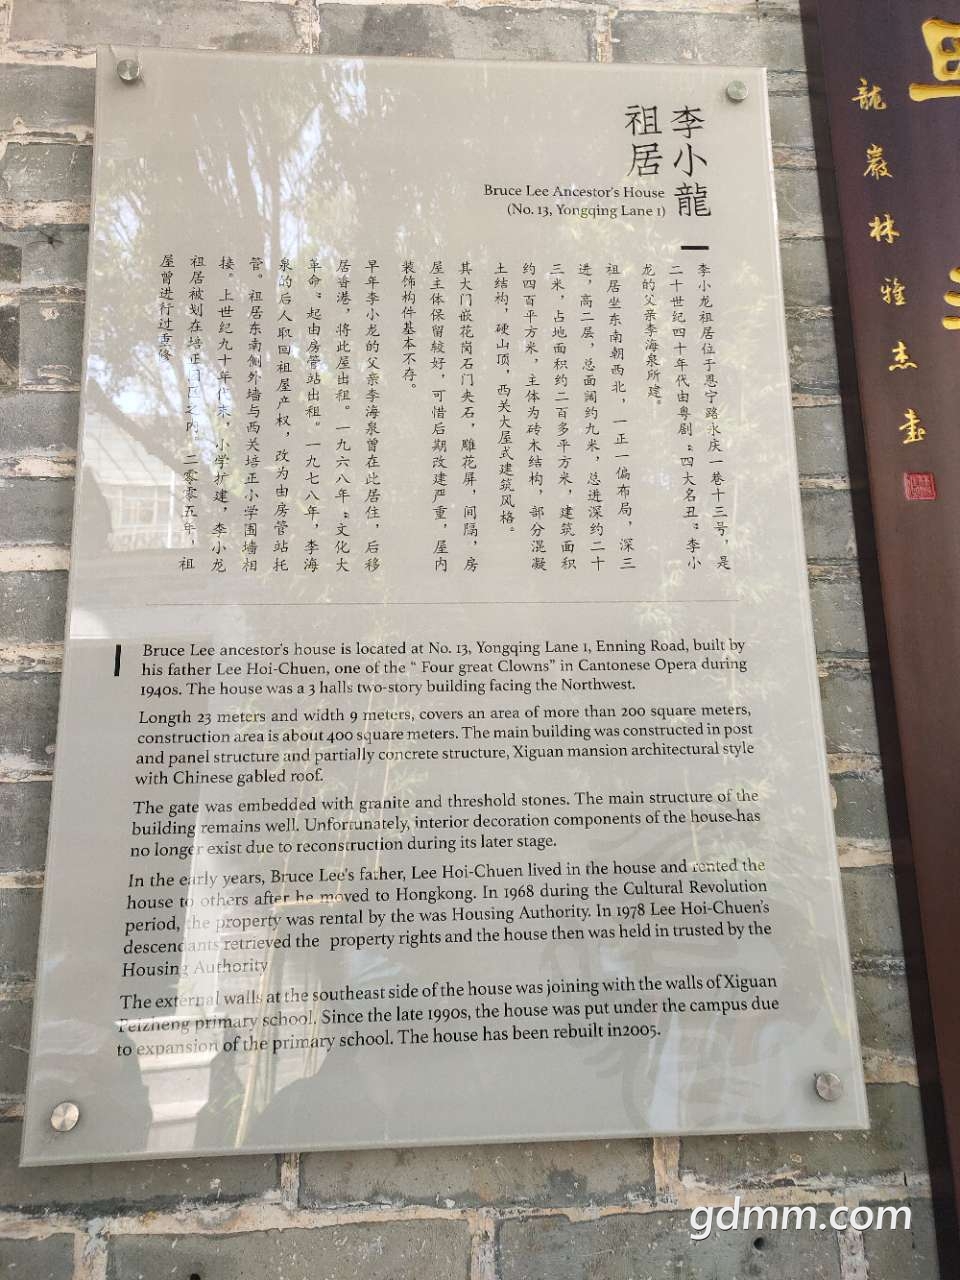 李小龍
祖居
Bruce Lee Ancestor's House
(No. 13, Yongqing Lane 1)
李小龙祖居位于恩宁路永庆一巷十三号，是
二十世纪四十年代由粤剧“四大名丑”李小
龙的父亲李海泉所建。
祖居坐东南朝西北，一正一偏布局，深三
进，高二层，总面阔约九米，总进深约二十
三米，占地面积约二百多平方米，建筑面积
约四百平方米，主体为砖木结构，部分混凝
土结构，硬山顶，西关大屋式建筑风格。
其大门嵌花岗石门夹石，雕花屏，间隔，房
屋主体保留较好，可惜后期改建严重，屋内
装饰构件基本不存。
早年李小龙的父亲李海泉曾在此居住，后移
居香港，将此屋出租。一九六八年“文化大
革命”起由房管站出租。一九七八年，李海
泉的后人取回祖屋产权，改为由房管站托
管。祖居东南侧外墙与西关培正小学围墙相
接。上世纪九十年代末，小学扩建，李小龙
祖居被划在培正区之内。二零零五年，祖
屋曾进行过重修
Bruce Lee ancestor's house is located at No. 13, Yongqing Lane 1, Enning Road, built by
his father Lee Hoi-Chuen, one of the “ Four great Clowns” in Cantonese Opera during
1940s. The house was a 3 halls two-story building facing the Northwest.
Length 23 meters and width 9 meters, covers an area of more than 200 square meters,
construction area is about 400 square meters. The main building was constructed in post
and panel structure and partially concrete structure, Xiguan mansion architectural style
with Chinese gabled roof.
The gate was embedded with granite and threshold stones. The main structure of the
building remains well. Unfortunately, interior decoration components of the house has
no longer exist due to reconstruction during its later stage.
In the early years, Bruce Lee's father, Lee Hoi-Chuen lived in the house and rented the
house to others after he moved to Hongkong. In 1968 during the Cultural Revolution
period, the property was rental by the was Housing Authority. In 1978 Lee Hoi-Chuen's
descendants retrieved the property rights and the house then was held in trusted by the
Housing Authority
The external walls at the southeast side of the house was joining with the walls of Xiguan
Peizheng primary school. Since the late 1990s, the house was put under the campus due
to expansion of the primary school. The house has been rebuilt in2005.
龍巖林雅杰書
gdmm.com